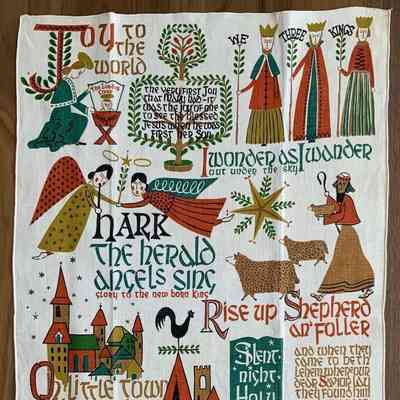 Joy to
the
world
The Lord is
Come
The very first Joy
that Mary had – it
was the joy of one
to see the blessed
Jesus when he was
first her Son
WE
THREE
KINGS
I wonder as I wander
out under the sky
HARK
The herald
angels sing
glory to the new born King
Rise up Shepherd
an' foller
Oh little town
Silent
night
Holy
and when they
came to beth
lehem where our
dear Savior lay
they found him